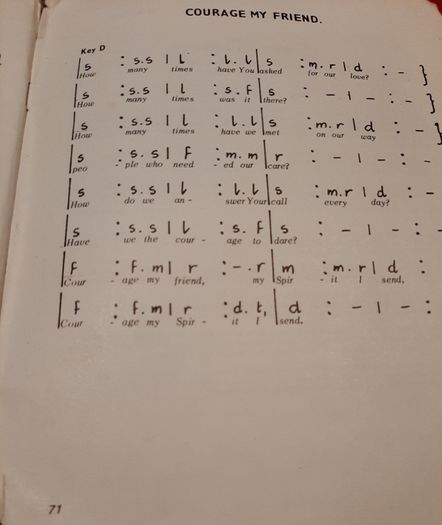 COURAGE MY FRIEND.
Key D
| s : s.s | l : l.l | s : m.r | d : - }
How many times have You asked for our love?
| s : s.s | l : s.f | s : - | - : -
How many times was it there?
| s : s.s | l : l.l | s : m.r | d : - }
How many times have we met on our way
| s : s.s | f : m.m | r : - | - : -
peo - ple who need - ed our care?
| s : s.s | l : l.l | s : m.r | d : -
How do we an - swer Your call every day?
| s : s.s | l : s.f | s : - | - : -
Have we the cour - age to dare?
| f : f.m | r : -.r | m : m.r | d :
Cour - age my friend, my Spir - it I send,
| f : f.m | r : d.t, | d : - | - :
Cour - age my Spir - it I send.
71